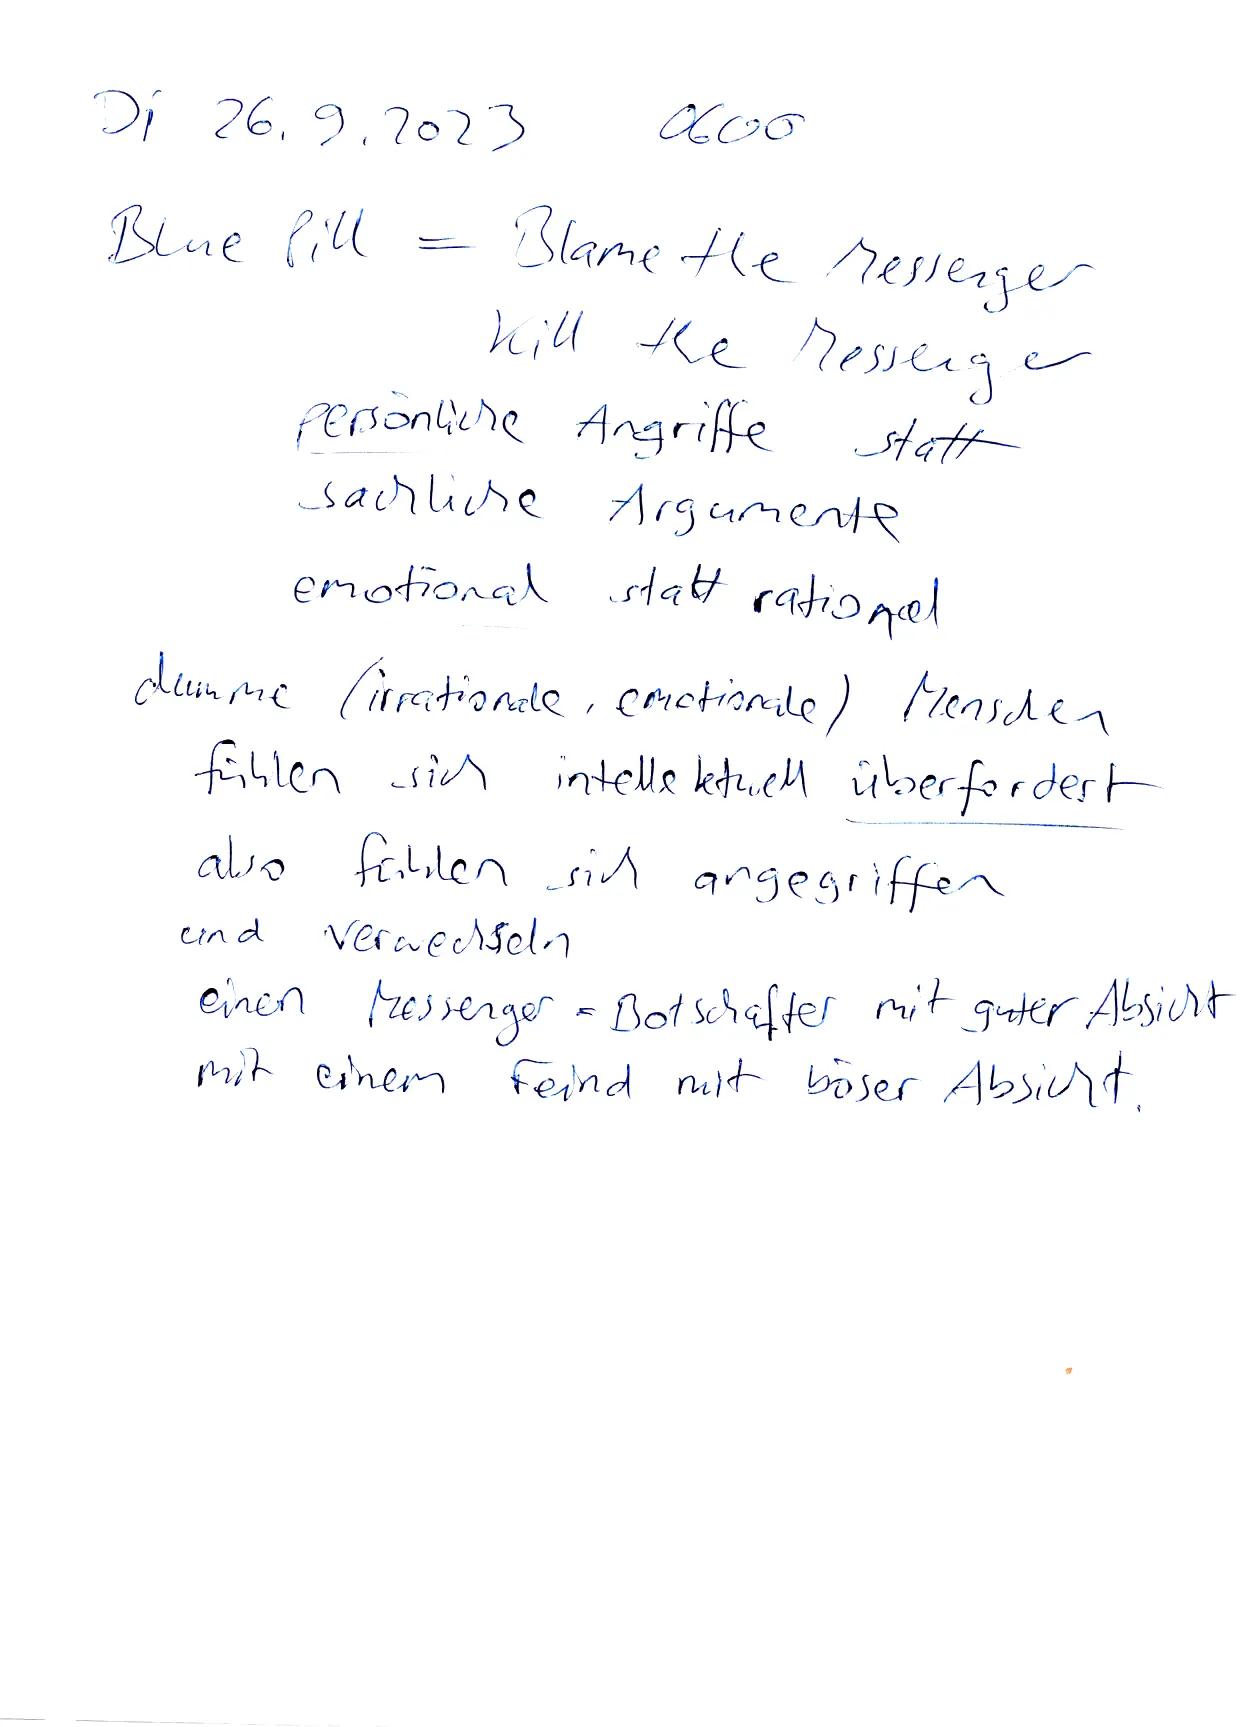 Di 26.9.2023 0600
Blue Pill = Blame the Messenger
Kill the Messenger
persönliche Angriffe statt
sachliche Argumente
emotional statt rational
dumme (irrationale, emotionale) Menschen
fühlen sich intellektuell überfordert
also fühlen sich angegriffen
und verwechseln
einen Messenger = Botschafter mit guter Absicht
mit einem Feind mit böser Absicht.